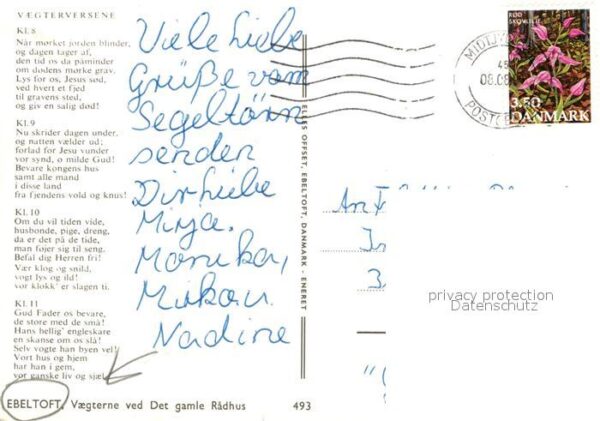 VÆGTERVERSENE
Kl. 8
Når mørket jorden blinder,
og dagen tager af,
den tid os da påminder
om dødens mørke grav.
Lys for os, Jesus sød,
ved hvert et fjed
til gravens sted,
og giv en salig død!
Kl. 9
Nu skrider dagen under,
og natten vælder ud;
forlad for Jesu vunder
vor synd, o milde Gud!
Bevare kongens hus
samt alle mand
i disse land
fra fjendens vold og knus!
Kl. 10
Om du vil tiden vide,
husbonde, pige, dreng,
da er det på de tide,
man føjer sig til seng.
Befal dig Herren fri!
Vær klog og snild,
vogt lys og ild!
vor klokk' er slagen ti.
Kl. 11
Gud Fader os bevare,
de store med de små!
Hans hellig' engleskare
en skanse om os slå!
Selv vogte han byen vel!
Vort hus og hjem
har han i gem,
vor ganske liv og sjæl.
EBELTOFT. Vægterne ved Det gamle Rådhus
493
Viele liebe
Grüße vom
Segeltörn
senden
Dir liebe
Mirja.
Monika,
Mirko u.
Nadine
ELLES OFFSET, EBELTOFT, DANMARK - ENERET
RØD
SKOVLILJE
3.50
DANMARK
An
privacy protection
Datenschutz